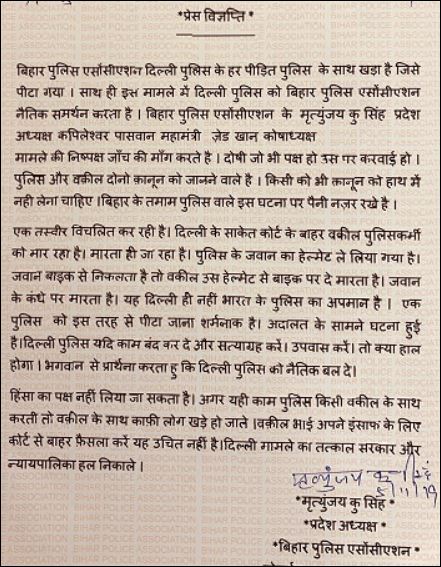 *प्रेस विज्ञप्ति *
बिहार पुलिस एसोंसीएशन दिल्ली पुलिस के हर पीड़ित पुलिस के साथ खडा है जिसे
पीटा गया । साथ ही इस मामले में दिल्ली पुलिस को बिहार पुलिस एसोंसीएशन
नैतिक समर्थन करता है । बिहार पुलिस एसोंसीएशन के मृत्युंजय कु सिंह प्रदेश
अध्यक्ष कपिलेश्वर पासवान महामंत्री ज़ेड खान कोषाध्यक्ष
मामले की निष्पक्ष जाँच की माँग करते है । दोषी जो भी पक्ष हो उस पर करवाई हो ।
पुलिस और वक़ील दोनो क़ानून को जानने वाले है । किसी को भी क़ानून को हाथ में
नही लेना चाहिए ।बिहार के तमाम पुलिस वाले इस घटना पर पैनी नज़र रखे है ।
एक तस्वीर विचलित कर रही है। दिल्ली के साकेत कोर्ट के बाहर वक़ील पुलिसकर्मी
को मार रहा है। मारता ही जा रहा है। पुलिस के जवान का हेल्मेट ले लिया गया है।
जवान बाइक से निकलता है तो वकील उस हेल्मेट से बाइक पर दे मारता है। जवान
के कंधे पर मारता है। यह दिल्ली ही नहीं भारत के पुलिस का अपमान है । एक
पुलिस को इस तरह से पीटा जाना शर्मनाक है। अदालत के सामने घटना हुई
है।दिल्ली पुलिस यदि काम बंद कर दे और सत्याग्रह करें। उपवास करें। तो क्या हाल
होगा । भगवान से प्रार्थना करता हु कि दिल्ली पुलिस को नैतिक बल दे।
हिंसा का पक्ष नहीं लिया जा सकता है। अगर यही काम पुलिस किसी वकील के साथ
करती तो वक़ील के साथ काफ़ी लोग खड़े हो जाते ।वक़ील भाई अपने इंसाफ के लिए
कोर्ट से बाहर फ़ैसला करें यह उचित नहीं है।दिल्ली मामले का तत्काल सरकार और
न्यायपालिका हल निकाले ।
मृत्युंजय कु सिंह
5/11/19
*मृत्युंजय कु सिंह*
*प्रदेश अध्यक्ष *
*बिहार पुलिस एसोंसीएशन*